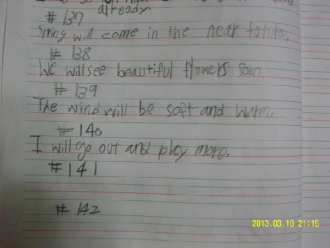 # 137 already.
Spring will come in the near future.
# 138
We will see beautiful flowers soon.
# 139
The wind will be soft and warm.
# 140
I will go out and play more.
# 141
# 142
2013.03.10 21:15